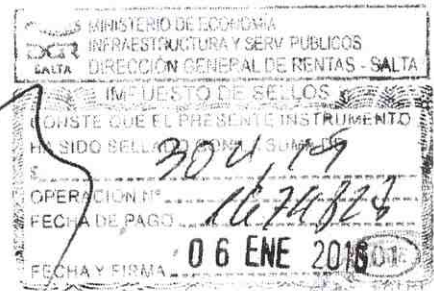 MINISTERIO DE ECONOMIA
INFRAESTRUCTURA Y SERV PUBLICOS
DGR
SALTA
DIRECCIÓN GENERAL DE RENTAS - SALTA
IMPUESTO DE SELLOS
CONSTE QUE EL PRESENTE INSTRUMENTO
HA SIDO SELLADO CON LA SUMA DE
$ 304,19
OPERACIÓN Nº
FECHA DE PAGO
06 ENE 2016
FECHA Y FIRMA